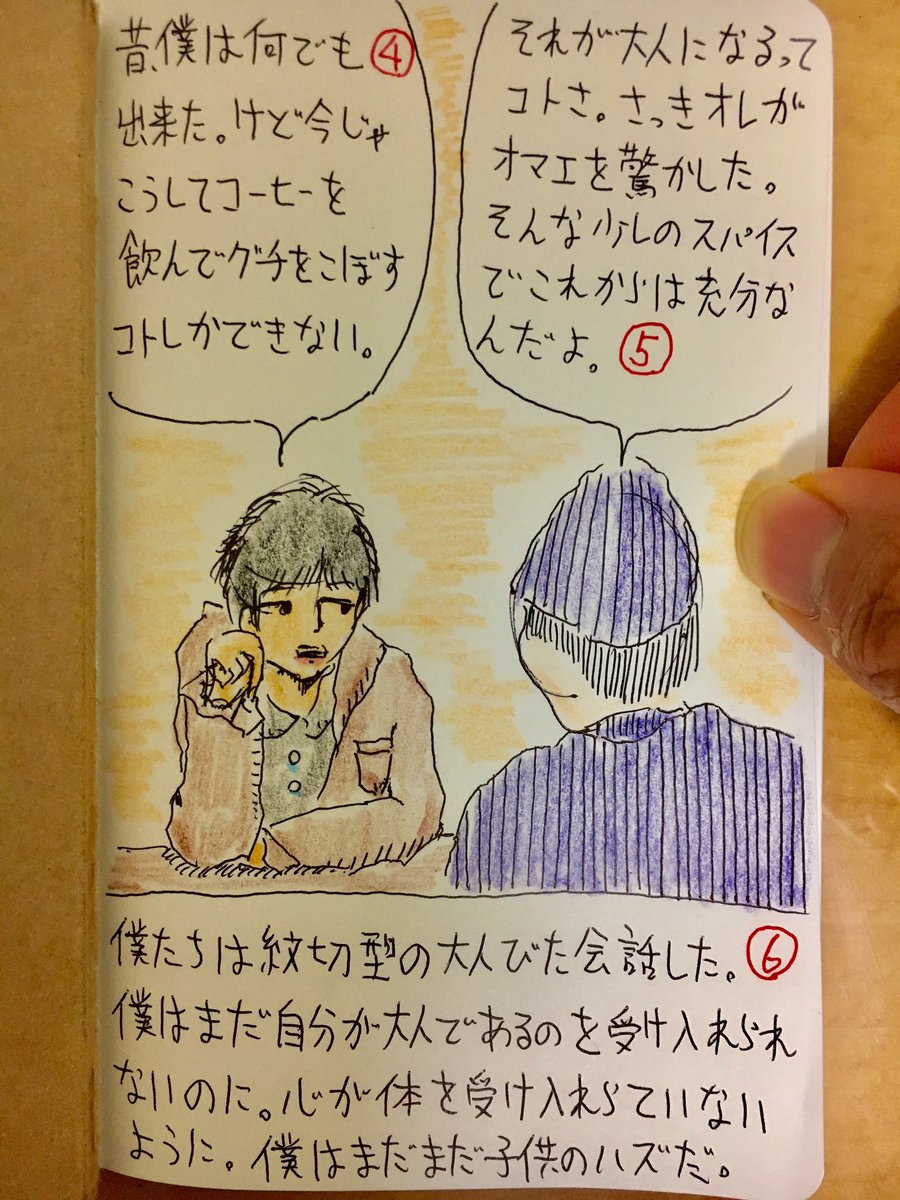 昔、僕は何でも④
出来た。けど今じゃ
こうしてコーヒーを
飲んでグチをこぼす
コトしかできない。
それが大人になるって
コトさ。さっきオレが
オマエを驚かした。
そんな少しのスパイス
でこれからは充分な
んだよ。⑤
僕たちは紋切型の大人びた会話した。⑥
僕はまだ自分が大人であるのを受け入れられ
ないのに。心が体を受け入れらていない
ように。僕はまだまだ子供のハズだ。